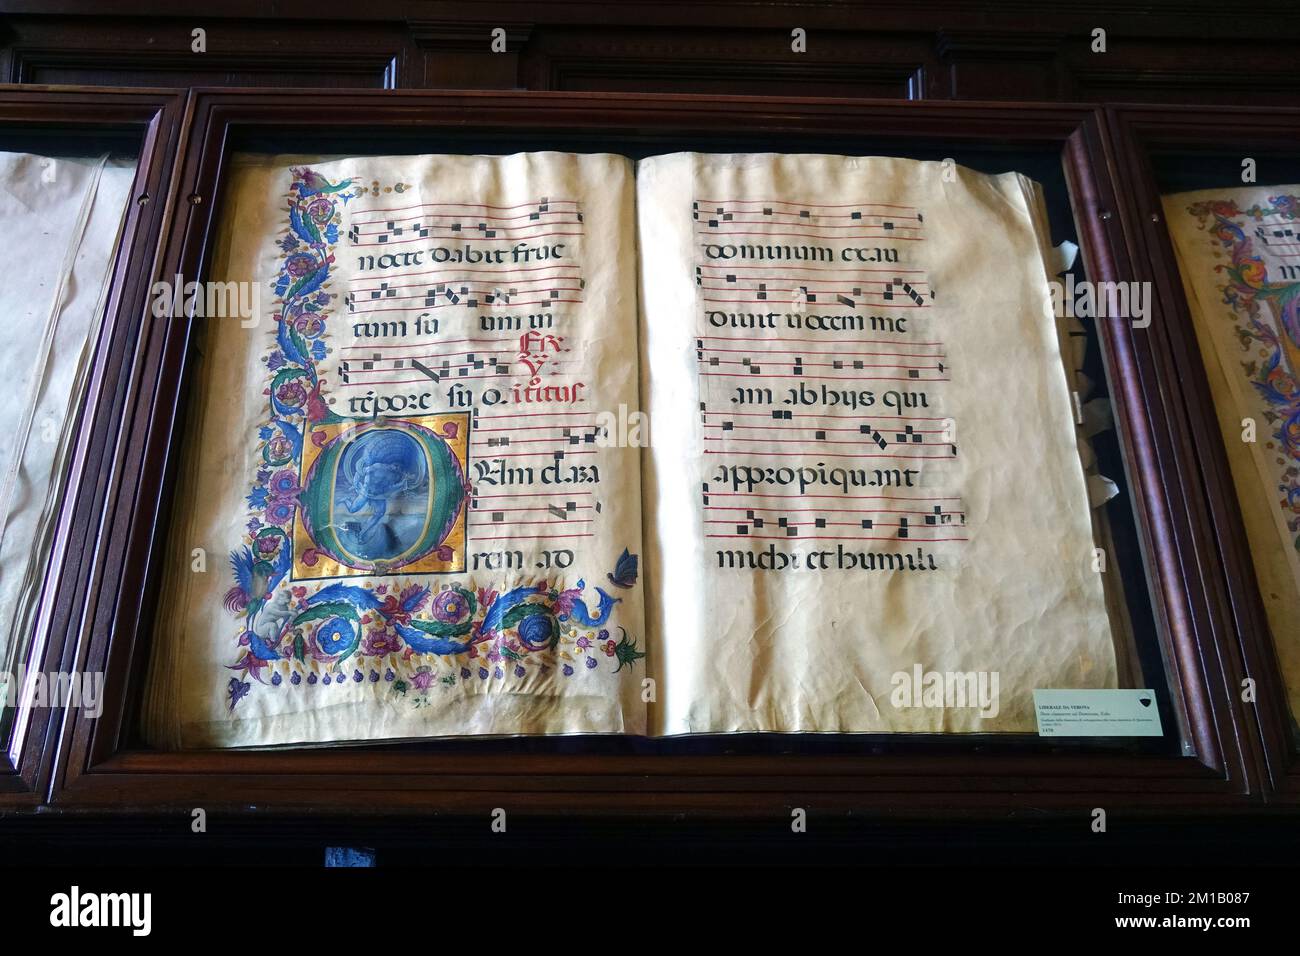 nocte dabit fruc
tum su um in
FR.
V.
tēpore su o. ītitus.
Um clara
rem ad
dominum exau
divit vocem me
am ab hys qui
appropīquant
michi et humili
LIBERALE DA VERONA
1470
alamy
Image ID: 2M1B087
www.alamy.com